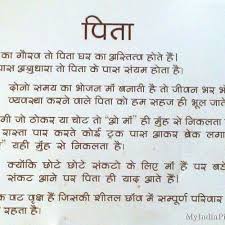 पिता
का गौरव तो पिता घर का अस्तित्व होते हैं।
पास अश्रुधारा तो पिता के पास संयम होता है।
दोनो समय का भोजन माँ बनाती है तो जीवन भर भ
व्यवस्था करने वाले पिता को हम सहज ही भूल जाते
भी जो ठोकर या चोट तो "ओ माँ" ही मुँह से निकलता
रास्ता पार करते कोई ट्रक पास आकर ब्रेक लगा
" यही मुँह से निकलता है।
क्योंकि छोटे छोटे संकटो के लिए माँ है पर बडे
संकट आने पर पिता ही याद आते है।
क वट वृक्ष हैं जिसकी शीतल छाँव में सम्पूर्ण परिवार
रहता है।
MyIndiaPi